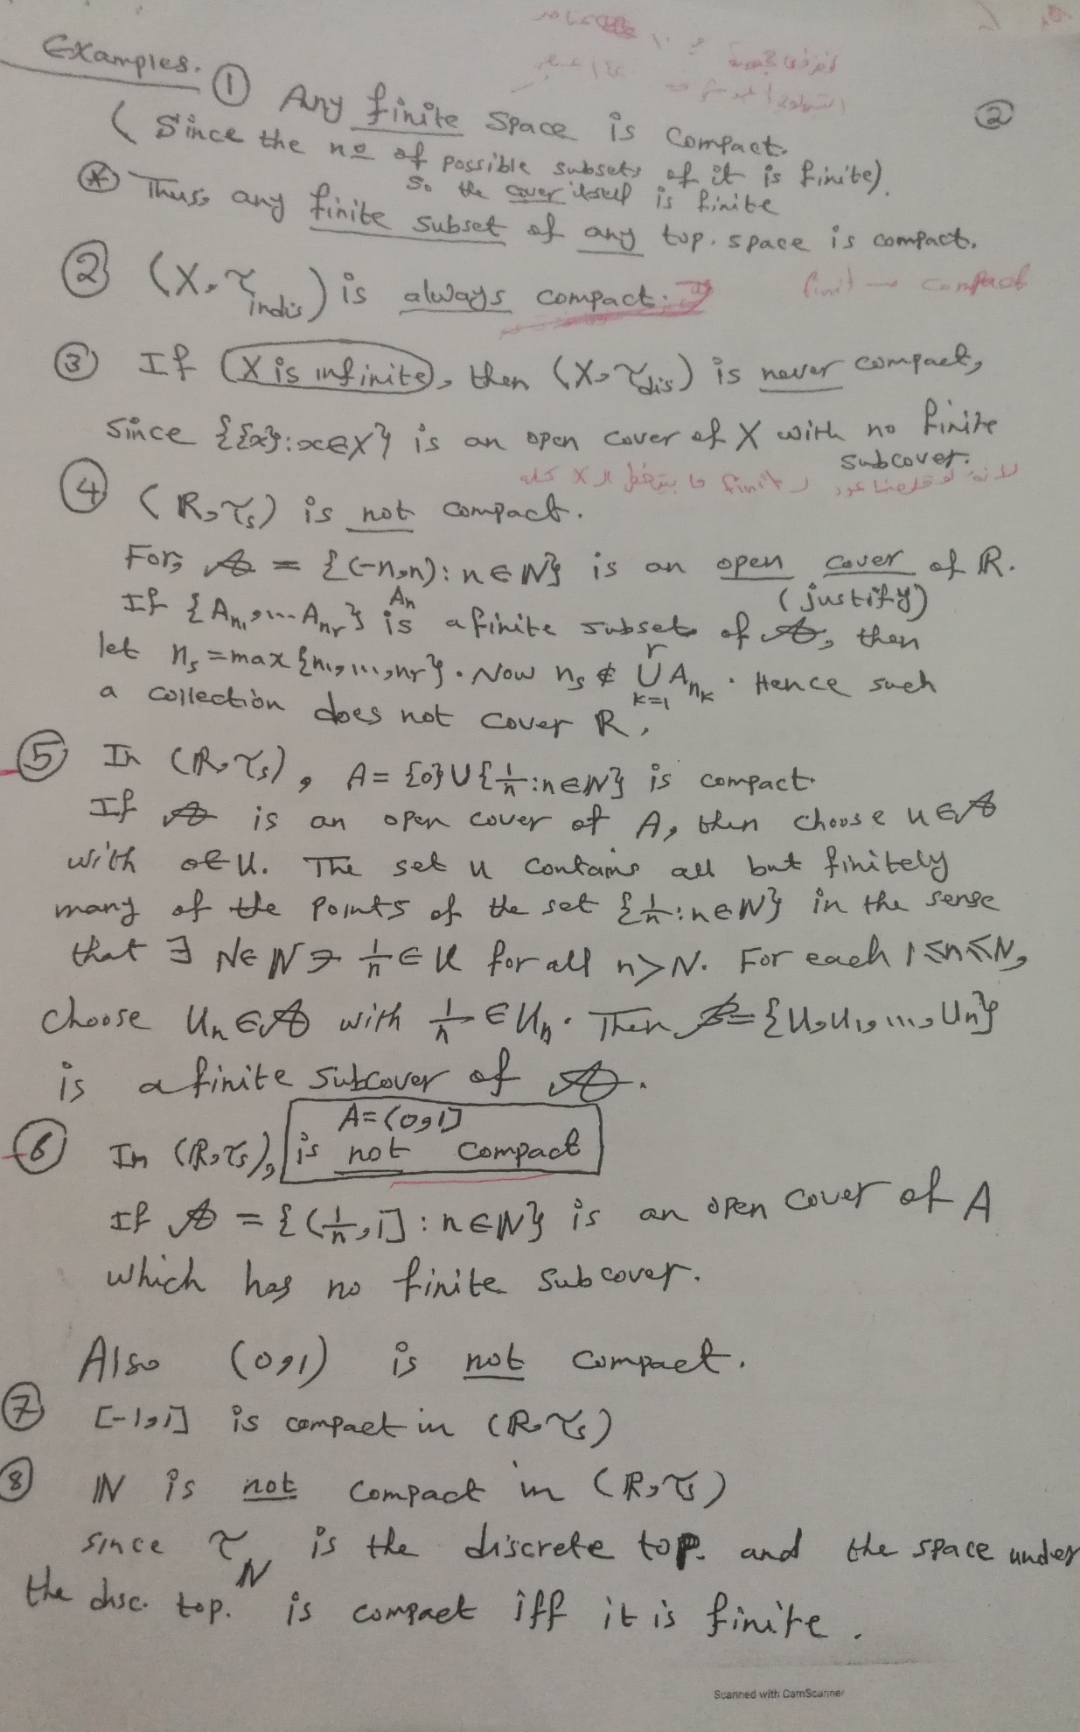 Examples. ① Any finite space is compact.
②
(Since the no of possible subsets of it is finite).
So the cover itself is finite
⊛ Thus, any finite subset of any top. space is compact.
② (X, τ_indis) is always compact.
finit → compact
③ If (X is infinite), then (X, τ_dis) is never compact,
since {{x}: x∈X} is an open cover of X with no finite
subcover.
finit
④ (R, τ_s) is not compact.
For, 𝒜 = {(-n,n): n∈N} is an open cover of R.
A_n
(justify)
If {A_n₁, ... A_nᵣ} is a finite subset of 𝒜, then
let n_s = max{n₁, ..., nᵣ}. Now n_s ∉ ⋃_{k=1}^{r} A_{n_k}. Hence such
a collection does not cover R,
⑤ In (R, τ_s), A = {0}∪{1/n : n∈N} is compact.
If 𝒜 is an open cover of A, then choose u∈𝒜
with o∈U. The set u contains all but finitely
many of the points of the set {1/n : n∈N} in the sense
that ∃ N∈N ∋ 1/n ∈ U for all n>N. For each 1≤n≤N,
choose U_n ∈ 𝒜 with 1/n ∈ U_n. Then ℬ = {U, U₁, ..., U_n}
is a finite subcover of 𝒜.
⑥ In (R, τ_s), A = (0,1] is not compact
If 𝒜 = {(1/n, 1] : n∈N} is an open cover of A
which has no finite subcover.
Also (0,1) is not compact.
⑦ [-1,1] is compact in (R, τ_s)
⑧ N is not compact in (R, τ_s)
since τ_N is the discrete top. and the space under
the disc. top. is compact iff it is finite.
Scanned with CamScanner